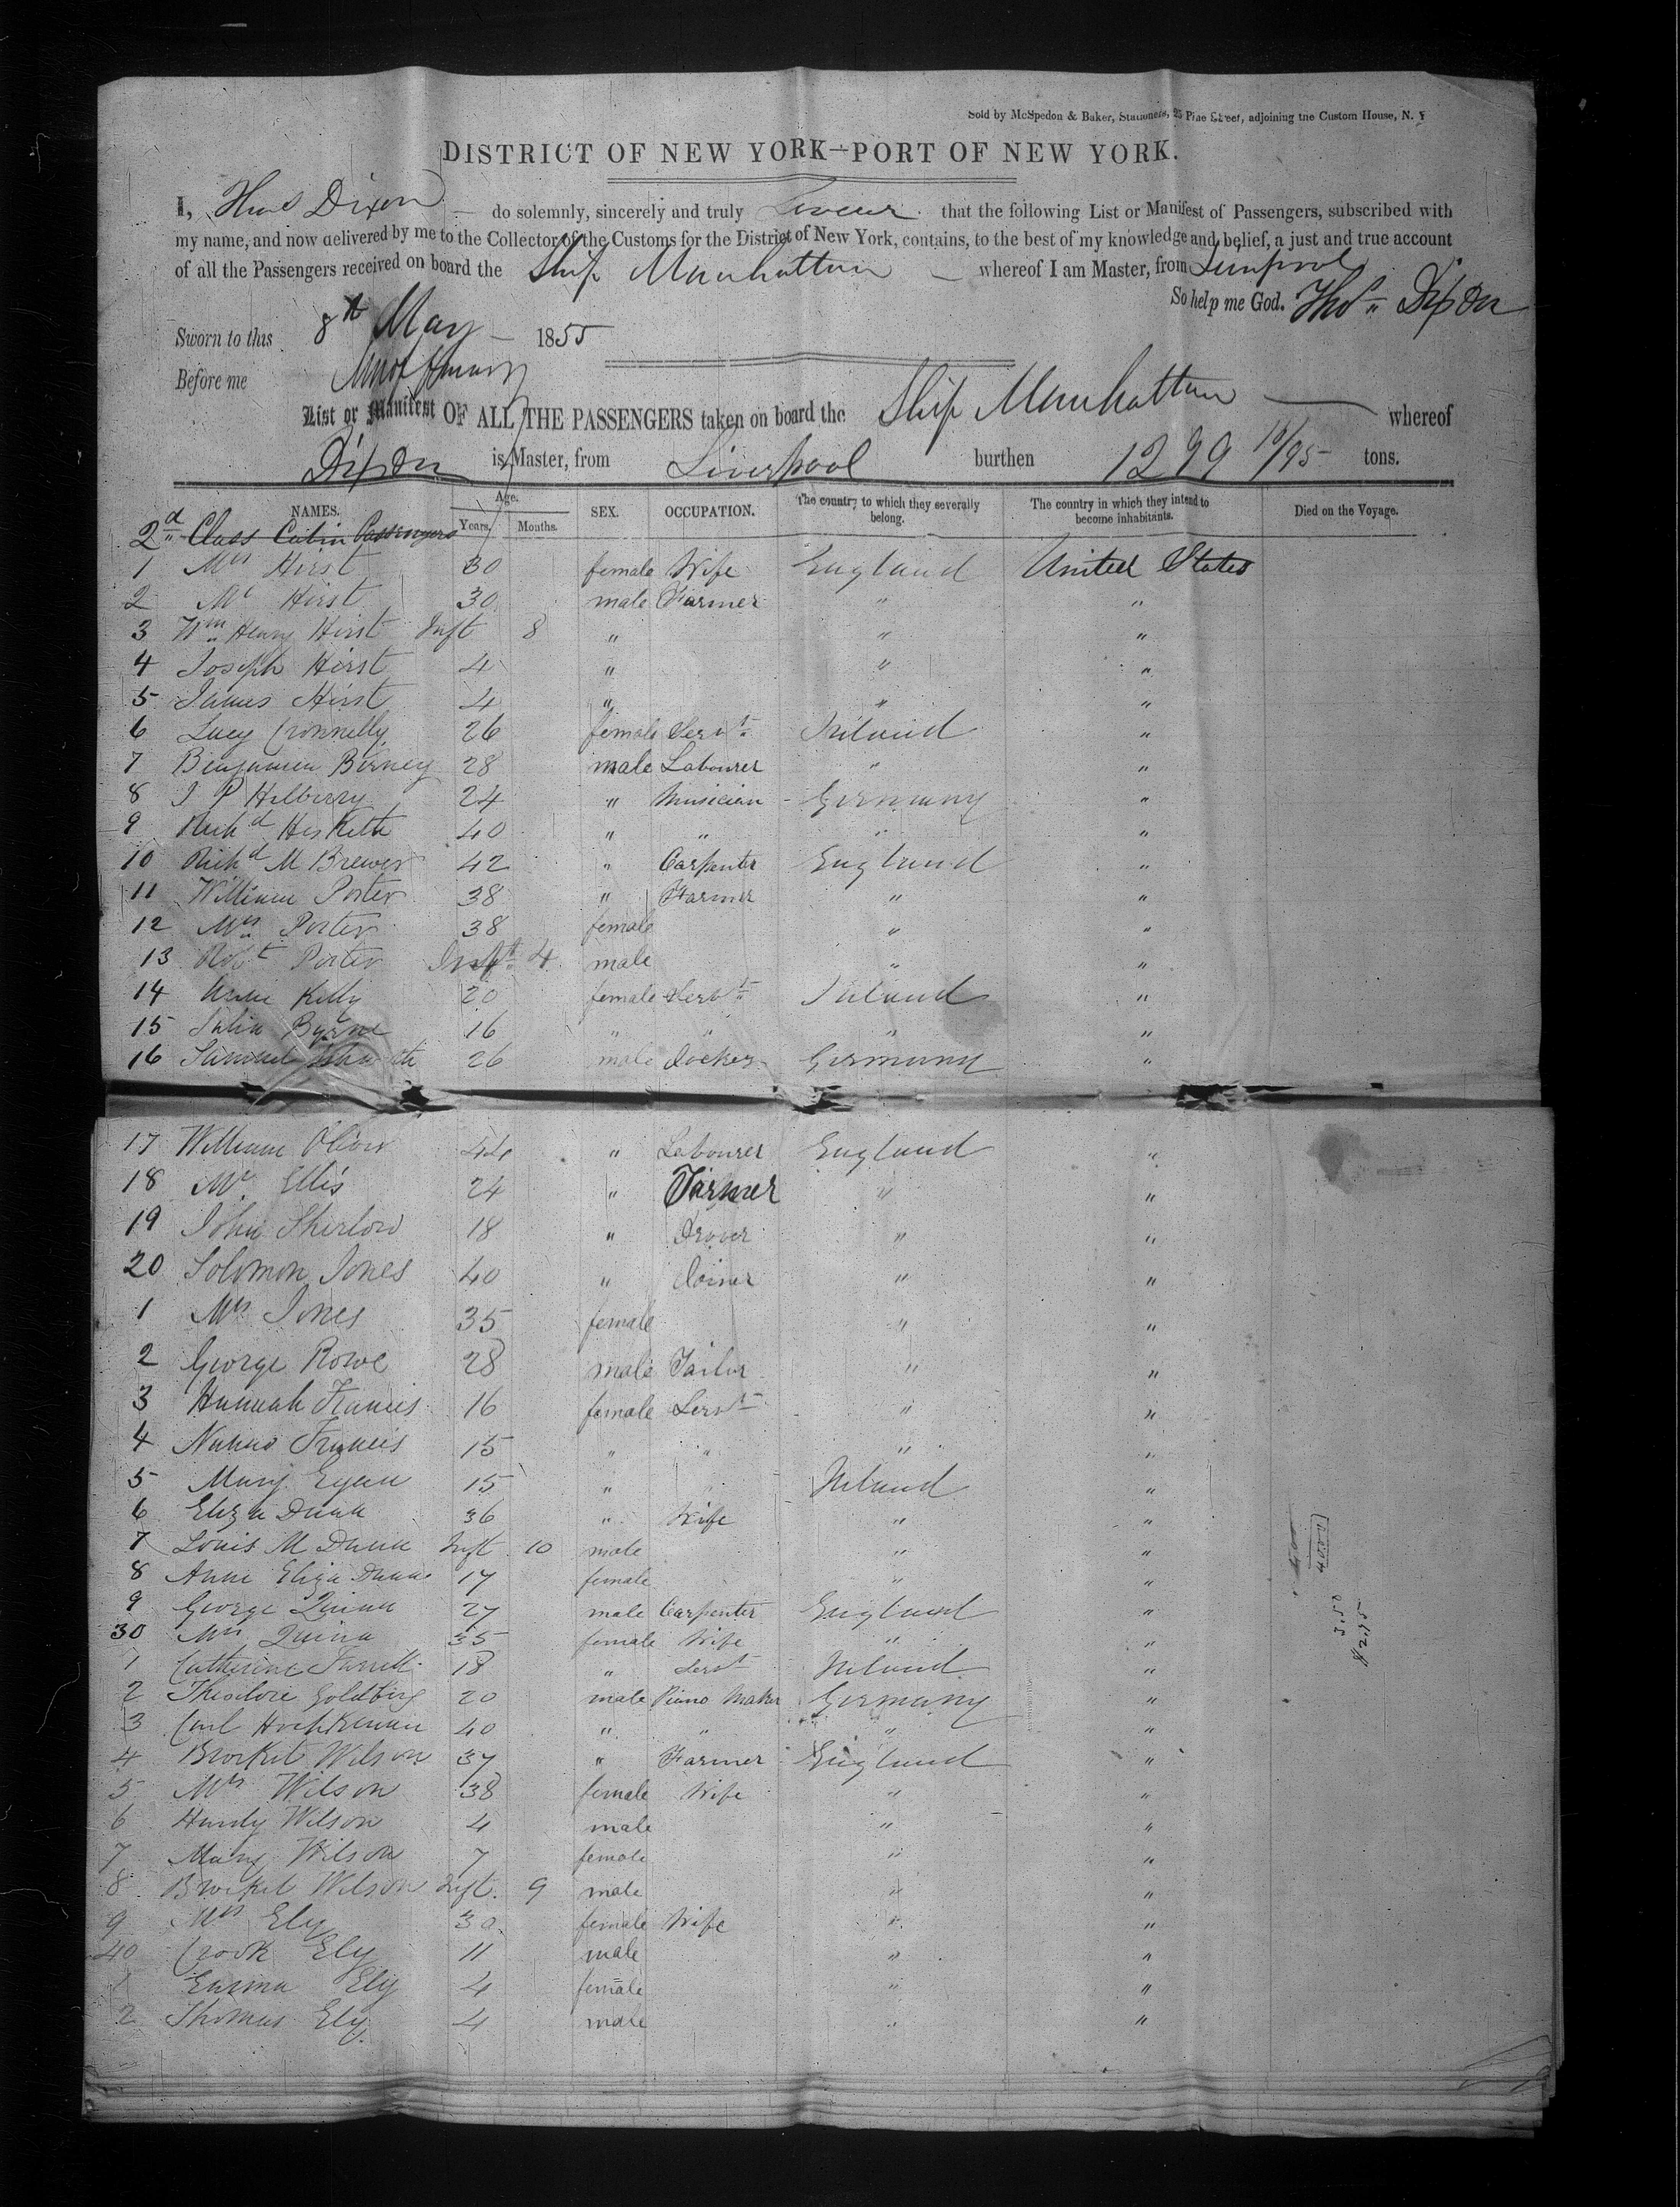 Sold by McSpedon & Baker, Stationers, 25 Pine Street, adjoining the Custom House, N. Y
DISTRICT OF NEW YORK—PORT OF NEW YORK.
I, Thos Dixon do solemnly, sincerely and truly swear that the following List or Manifest of Passengers, subscribed with
my name, and now delivered by me to the Collector of the Customs for the District of New York, contains, to the best of my knowledge and belief, a just and true account
of all the Passengers received on board the Ship Manhattan whereof I am Master, from Liverpool
So help me God. Thos Dixon
Sworn to this 8th May 1855
Before me
List or Manifest OF ALL THE PASSENGERS taken on board the Ship Manhattan whereof
Dixon is Master, from Liverpool burthen 1299 /95 tons.
NAMES. Age. Years, Months. SEX. OCCUPATION. The country to which they severally belong. The country in which they intend to become inhabitants. Died on the Voyage.
2d Class Cabin Passengers
1 Mrs Hirst 30 female Wife England United States
2 Mr Hirst 30 male Farmer " "
3 Wm Henry Hirst Inft 8 " " "
4 Joseph Hirst 4 " " "
5 James Hirst 4 " " "
6 Lucy Connelly 26 female Servt Ireland "
7 Benjamin Birney 28 male Labourer " "
8 J P Hilberry 24 " Musician Germany "
9 Richd Hesketh 40 " " " "
10 Richd M Brewer 42 " Carpenter England "
11 William Porter 38 " Farmer " "
12 Mrs Porter 38 female " "
13 Robt Porter Inft 4 male " "
14 Kelly 20 female Servt Ireland "
15 Julia Byrne 16 " " " "
16 Samuel 26 male Germany "
17 William Oliver 44 " Labourer England "
18 Mr Ellis 24 " Farmer " "
19 John Shirlow 18 " Drover " "
20 Solomon Jones 40 " Joiner " "
1 Mrs Jones 35 female " "
2 George Rowe 28 male Tailor " "
3 Hannah Francis 16 female Servt " "
4 Francis 15 " " " "
5 Mary Egan 15 " " Ireland "
6 Eliza Dunn 36 " Wife " "
7 Louis M Dunn Inft 10 male " "
8 Anne Eliza Dunn 17 female " "
9 George Quinn 27 male Carpenter England "
30 Mrs Quinn 35 female Wife " "
1 Catherine Farrell 18 " Servt Ireland "
2 Theodore Goldberg 20 male Piano Maker Germany "
3 Carl 40 " " " "
4 Brocket Wilson 37 " Farmer England "
5 Mrs Wilson 38 female Wife " "
6 Hardy Wilson 4 male " "
7 Mary Wilson 7 female " "
8 Brocket Wilson Inft. 9 male " "
9 Mrs Ely 30 female Wife " "
40 Crook Ely 11 male " "
1 Emma Ely 4 female " "
2 Thomas Ely 4 male " "